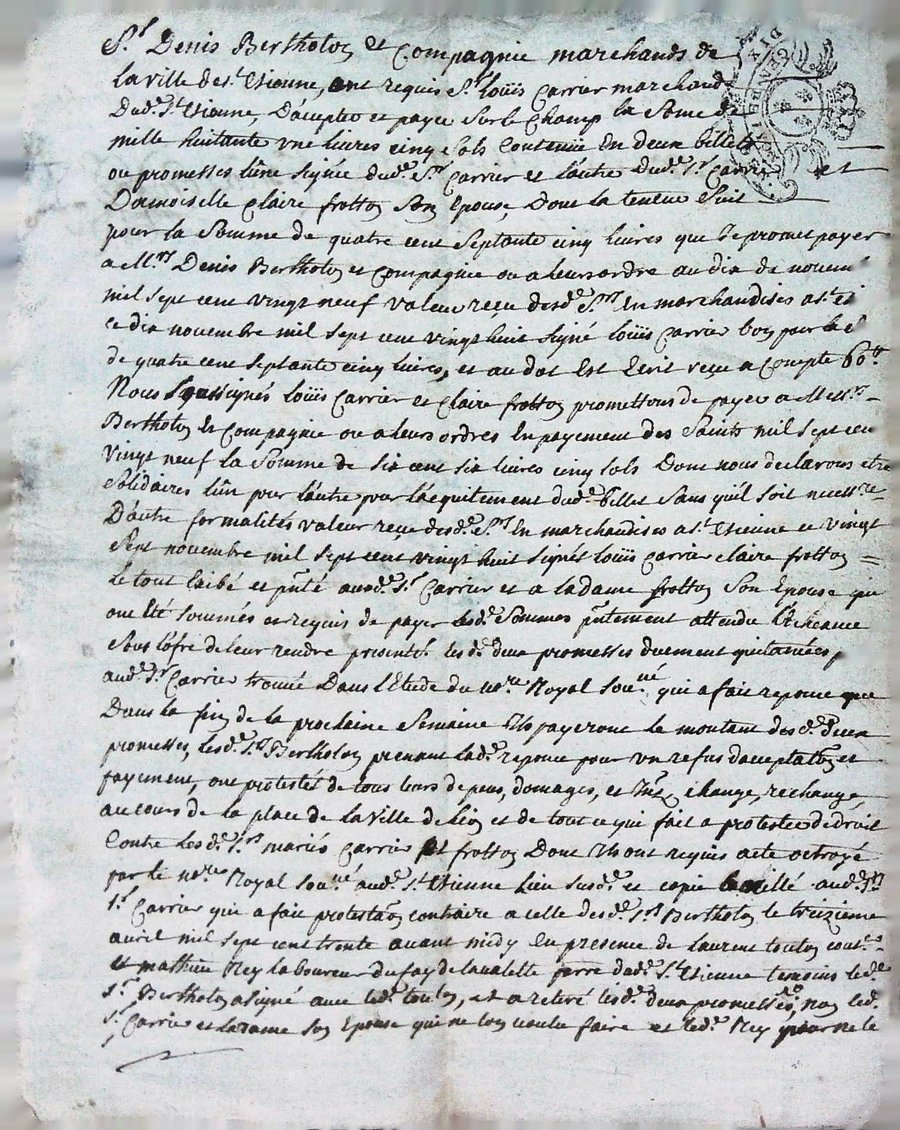 Sr. Denis Bertholon et Compagnie marchands de
la ville de st. Etienne, ont requis Sr. loüis Carrier marchand
Dud. St. Etienne, D'accepter et payer sur le champ la some de
mille huitante une livres cinq sols contenüe En deux billets
ou promesses l'une signée dud. Sr. Carrier et l'autre dud. Sr. Carrier et
Damoiselle Claire frotton Son Epouse, Dont la teneur suit
pour la Somme de quatre cent septante cinq livres que Je promet payer
a Mrs. Denis Bertholon et Compagnie ou a leur ordre au dix de novem
mil sept cent vingt neuf valeur reçue desd. Srs. En marchandises a st. et
ce dix novembre mil sept cent vingt huit signé loüis Carrier bon pour la
de quatre cent septante cinq livres, et au dos Est Ecrit reçu a compte 60
Nous Soussignés loüis Carrier et Claire frotton promettons de payer a Messrs.
Bertholon et Compagnie ou a leurs ordres En payement des Saints mil sept cen
vingt neuf la Somme de six cent six livres cinq sols Dont nous declarons etre
Solidaires l'un pour l'autre pour l'acquitement dud. billet sans qu'il soit necessre.
D'autre formalités valeur reçue desd. Srs. En marchandises a St. Etienne ce vingt
sept novembre mil sept cent vingt huit signés loüis Carrier claire frotton =
le tout exibé et pnté ausd. Sr. Carrier et a la dame frotton son Epouse qui
ont Eté sommés et requis de payer lesd. Sommes pntement attendu l'Echeance
sous l'ofre de leur rendre presenté lesd. deux promesses duement quictancées,
aud. Sr. Carrier trouvé Dans l'Etude du nore. Royal Souné. qui a fait reponce que
Dans la fin de la prochaine Semaine Ils payeront le montant desd. deux
promesses, lesd. Srs. Bertholon prenant lad. reponce pour un refus d'acceptaon et
payement, ont protesté de tous leurs depens, domages, et Intz change, rechange,
au cours de la place de la ville de lion et de tout ce qui fait a protester de droit
Contre lesd. Srs. mariés Carrier et frotton Dont Ils ont requis acte octroyé
par le nore. Royal Souné. aud. St. Etienne lieu susd. et copie aud.
Sr. Carrier qui a fait protestaon contraire a celle desd. Srs. Bertholon le treizieme
avril mil sept cent trente avant midy En presence de Laurent touton
et mathieu Rey laboureur du fay de la valette dud. St. Etienne temoins led.
Sr. Bertholon a signé avec led. touton, et a retiré lesd. deux promesses, non led.
Sr. Carrier et son Epouse qui ne l'on voulu faire et led. Rey pour ne le